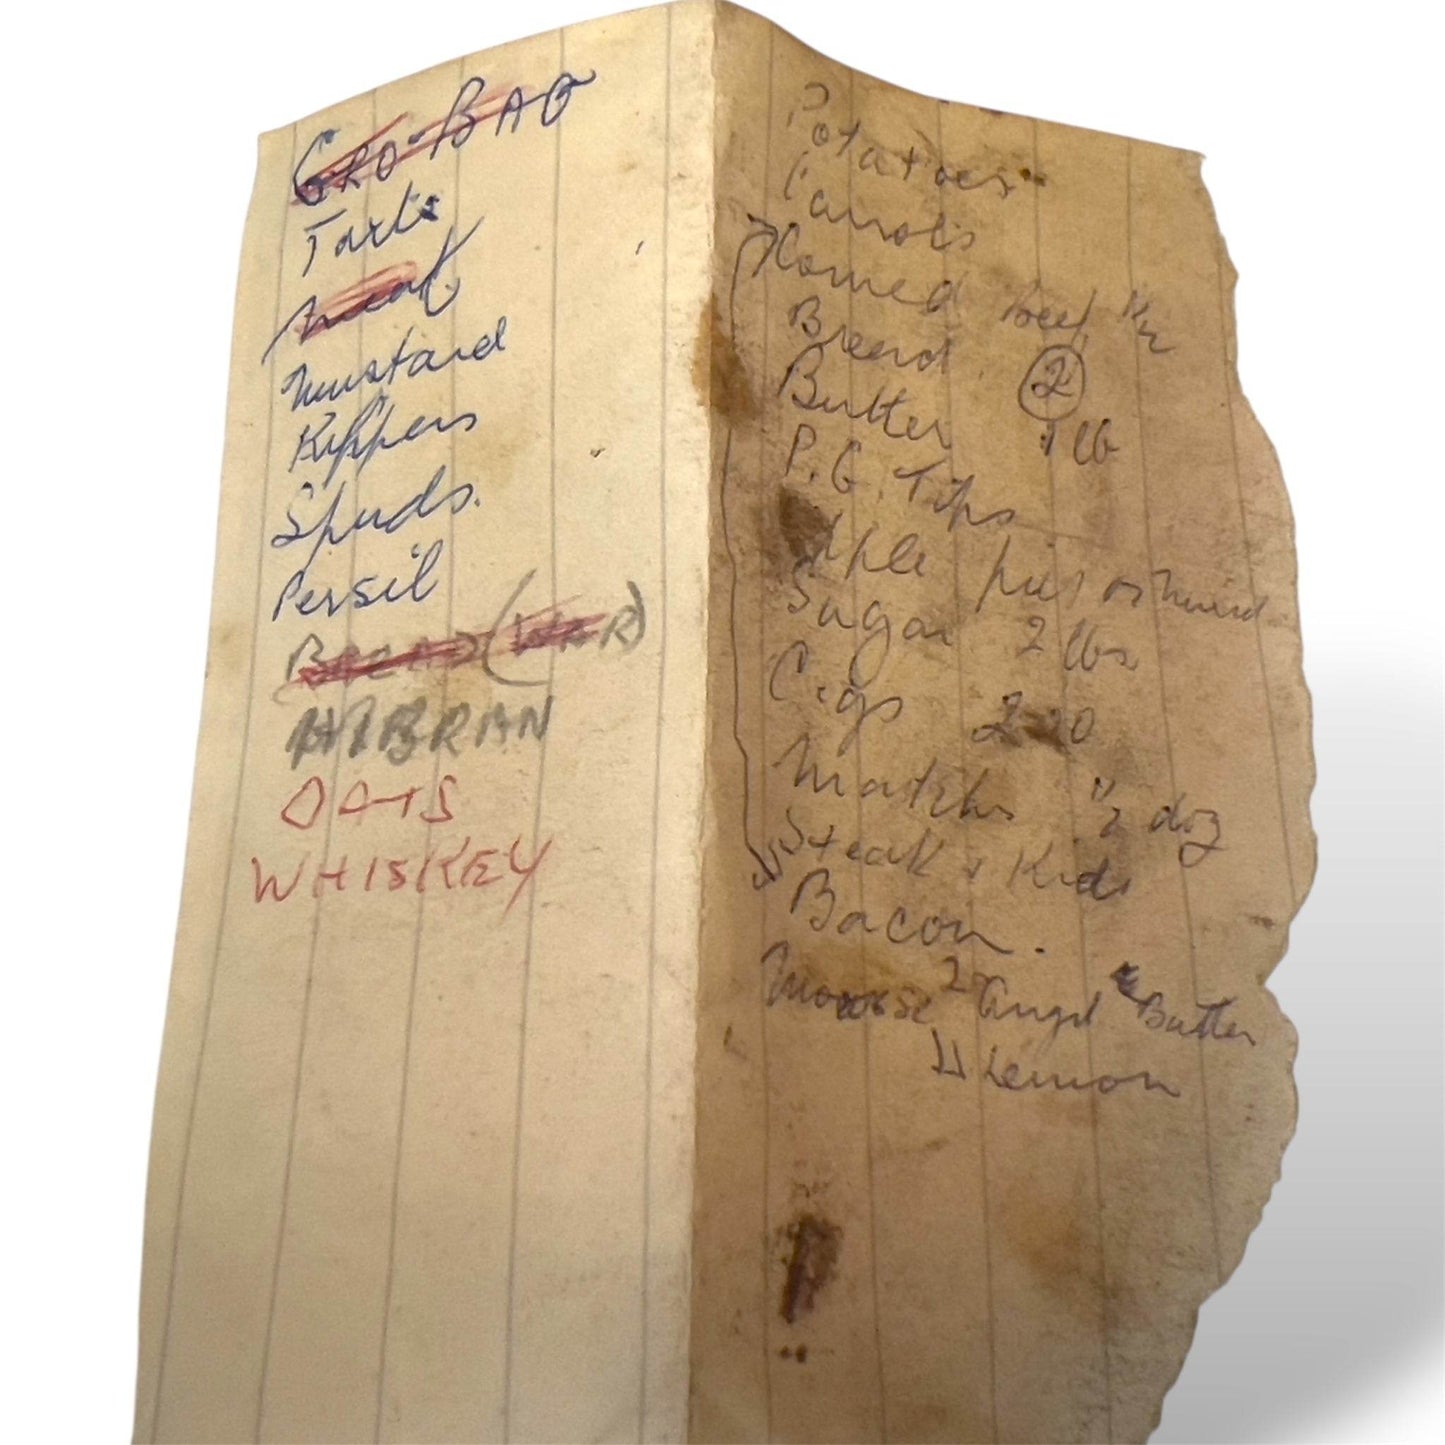 GRO-BAG
Tarts
Meat
Mustard
Kippers
Spuds.
Persil
BREAD (WAR)
HIBRAN
OATS
WHISKEY
Potatoes
Carrots
Corned Beef 1/2
Bread 2
Butter 1 lb
P.G. Tips
Apple pies or
Sugar 2 lbs
Cigs 2 20
Matches 1/2 doz
Steak & Kid
Bacon.
Mousse 2 Angel Butter
Lemon